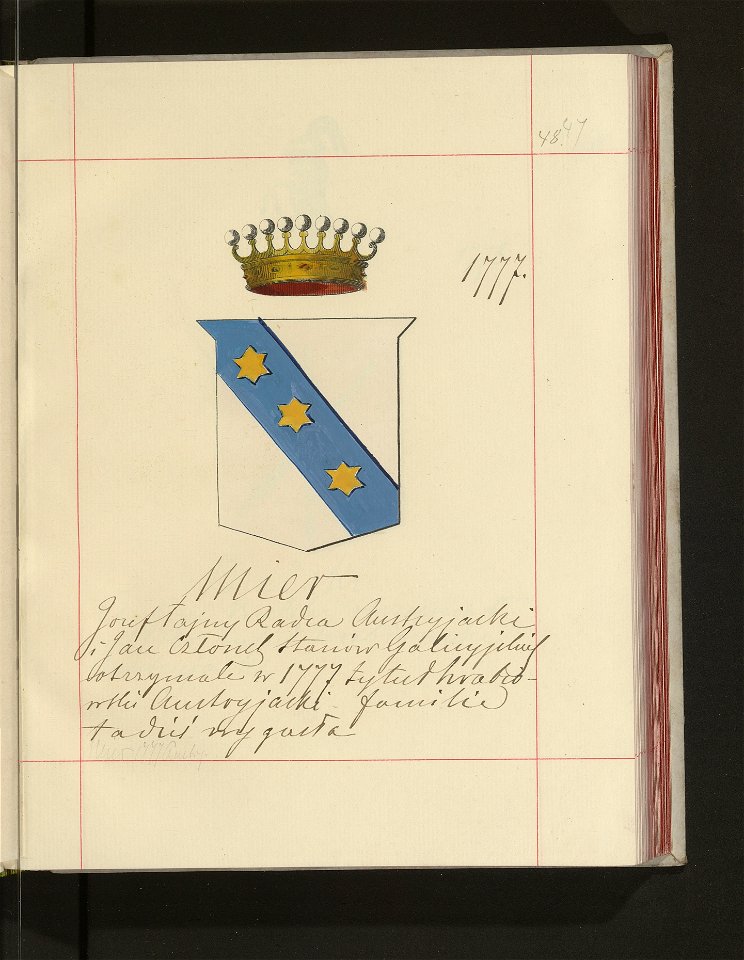 48.47
1777.
Mier
Józef tajny Radca Austryjacki
i Jan Członek Stanów Galicyjskich
otrzymali w 1777 tytuł hrabio-
wski Austryjacki familie
ta dziś wygasła
1777